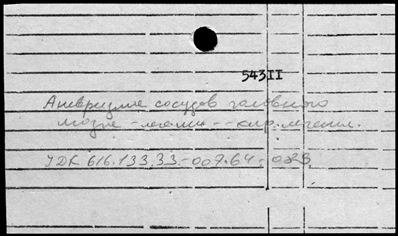 543II
Аневризмы сосудов головного
мозга - - хир. лечение.
УДК 616.133.33-007.64-089